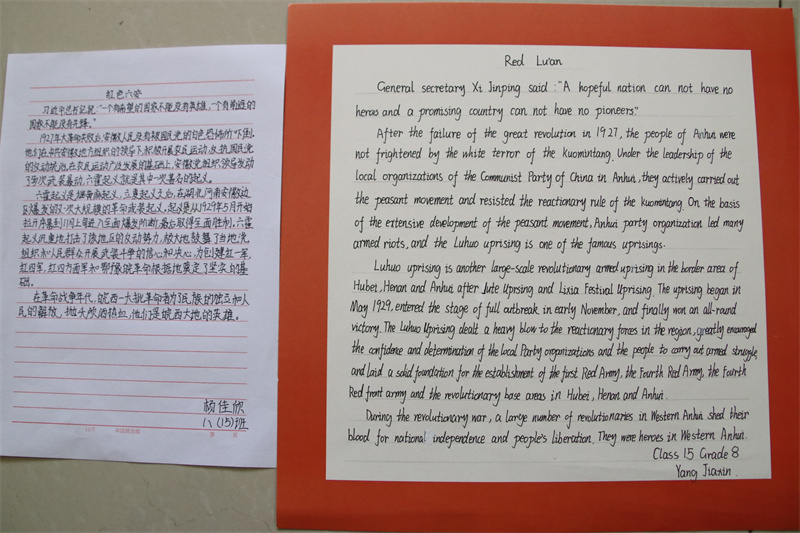 红色六安
习近平总书记说："一个有希望的国家不能没有英雄，一个有前途的
国家不能没有先锋。"
1927年大革命失败后，安徽人民没有被国民党的白色恐怖所吓倒，
他们在中共安徽地方组织的领导下，积极开展农民运动，反抗国民党
的反动统治，在农民运动广泛发展的基础上，安徽党组织领导发动
了多次武装暴动，六霍起义就是其中一次著名的起义。
六霍起义是继黄麻起义、立夏起义之后，在湖北、河南、安徽边
区爆发的又一次大规模的革命武装起义，起义是从1929年5月开始
拉开序幕到11月上旬进入全面爆发阶段，最后取得全面胜利，六霍
起义沉重地打击了该地区的反动势力，极大地鼓舞了当地党
组织和人民群众开展武装斗争的信心和决心，为创建红一军、
红四军、红四方面军和鄂豫皖革命根据地奠定了坚实的基
础。
在革命战争年代，皖西一大批革命者为了民族的独立和人
民的解放，抛头颅洒热血，他们是皖西大地的英雄。
杨佳欣
八(15)班
Red Lu'an
General secretary Xi Jinping said: "A hopeful nation can not have no
heroes and a promising country can not have no pioneers."
After the failure of the great revolution in 1927, the people of Anhui were
not frightened by the white terror of the kuomintang. Under the leadership of the
local organizations of the Communist Party of China in Anhui, they actively carried out
the peasant movement and resisted the reactionary rule of the kuomintang. On the basis
of the extensive development of the peasant movement, Anhui party organization led many
armed riots, and the Luhuo uprising is one of the famous uprisings.
Luhuo uprising is another large-scale revolutionary armed uprising in the border area of
Hubei, Henan and Anhui after Jute Uprising and Lixia Festival Uprising. The uprising began in
May 1929, entered the stage of full outbreak in early November, and finally won an all-round
victory. The Luhuo Uprising dealt a heavy blow to the reactionary forces in the region, greatly encouraged
the confidence and determination of the local Party organizations and the people to carry out armed struggle,
and laid a solid foundation for the establishment of the first Red Army, the Fourth Red Army, the Fourth
Red front army and the revolutionary base areas in Hubei, Henan and Anhui.
During the revolutionary war, a large number of revolutionaries in Western Anhui shed their
blood for national independence and people's liberation. They were heroes in Western Anhui.
Class 15 Grade 8
Yang Jiaxin.